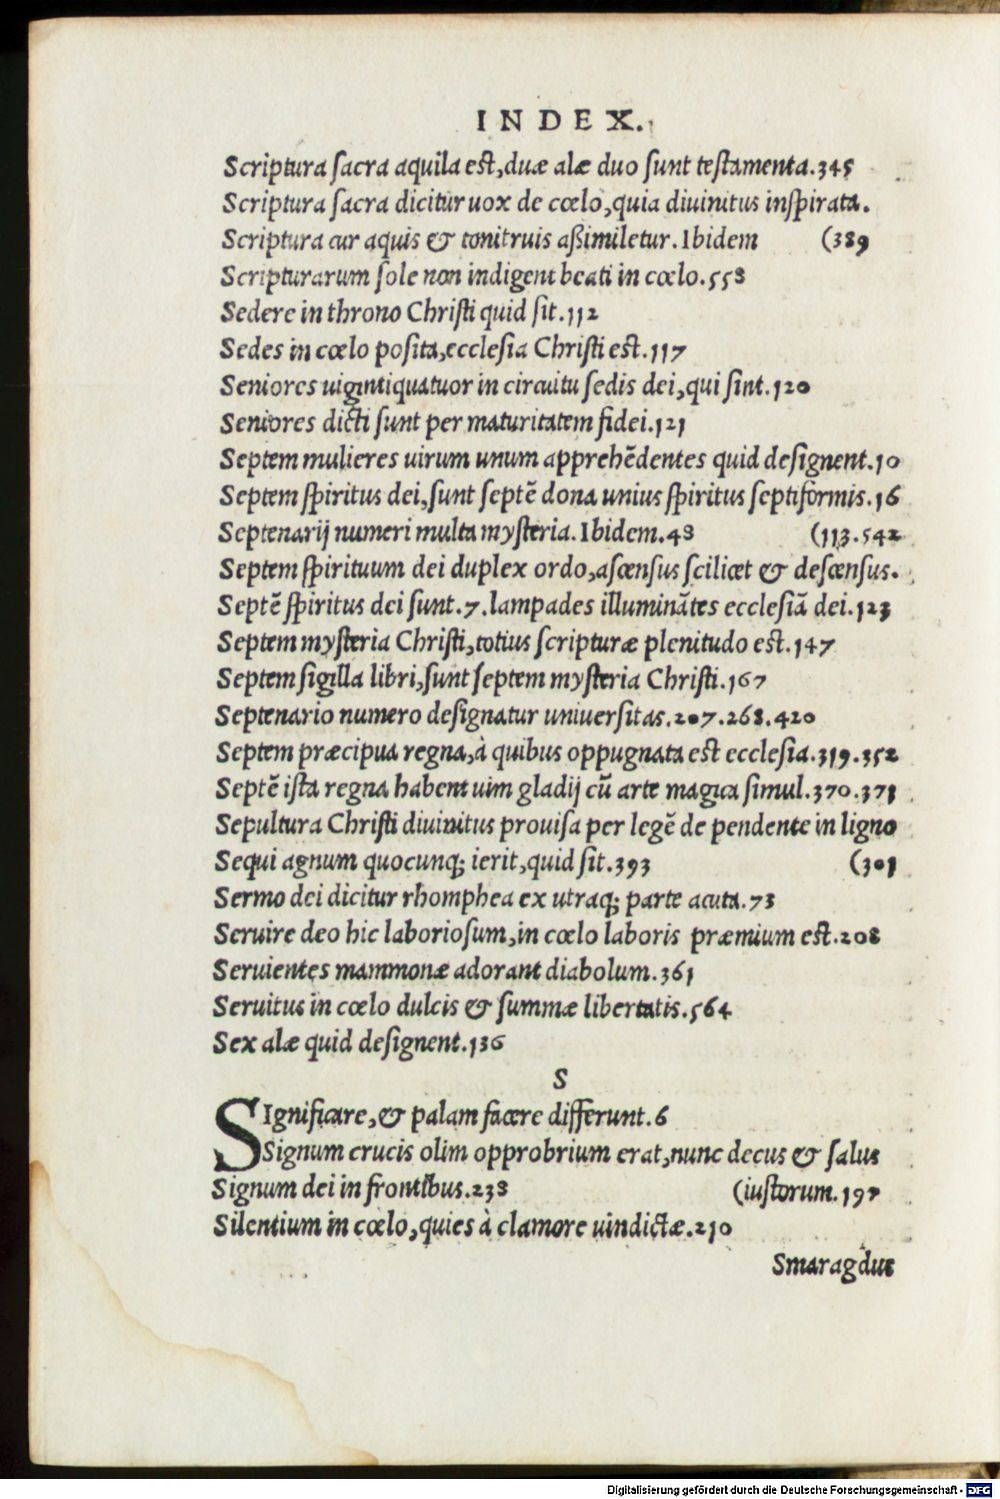 INDEX.
Scriptura ſacra aquila eſt, duæ alæ duo ſunt teſtamenta. 345
Scriptura ſacra dicitur uox de cœlo, quia diuinitus inſpirata.
Scriptura cur aquis & tonitruis aßimiletur. Ibidem (389
Scripturarum ſole non indigent beati in cœlo. 558
Sedere in throno Chriſti quid ſit. 112
Sedes in cœlo poſita, eccleſia Chriſti eſt. 117
Seniores uigintiquatuor in circuitu ſedis dei, qui ſint. 120
Seniores dicti ſunt per maturitatem fidei. 121
Septem mulieres uirum unum apprehẽdentes quid deſignent. 10
Septem ſpiritus dei, ſunt ſeptẽ dona unius ſpiritus ſeptiformis. 16
Septenarij numeri multa myſteria. Ibidem. 48 (113. 542
Septem ſpirituum dei duplex ordo, aſcenſus ſcilicet & deſcenſus.
Septẽ ſpiritus dei ſunt. 7. lampades illuminãtes eccleſiã dei. 123
Septem myſteria Chriſti, totius ſcripturæ plenitudo eſt. 147
Septem ſigilla libri, ſunt ſeptem myſteria Chriſti. 167
Septenario numero deſignatur uniuerſitas. 207. 268. 420
Septem præcipua regna, à quibus oppugnata eſt eccleſia. 319. 352
Septẽ iſta regna habent uim gladij cũ arte magica ſimul. 370. 371
Sepultura Chriſti diuinitus prouiſa per legẽ de pendente in ligno
Sequi agnum quocunq; ierit, quid ſit. 393 (301
Sermo dei dicitur rhomphea ex utraq; parte acuta. 73
Seruire deo hic laborioſum, in cœlo laboris præmium eſt. 208
Seruientes mammonæ adorant diabolum. 361
Seruitus in cœlo dulcis & ſummæ libertatis. 564
Sex alæ quid deſignent. 136
S
SIgnificare, & palam facere differunt. 6
Signum crucis olim opprobrium erat, nunc decus & ſalus
Signum dei in frontibus. 238 (iuſtorum. 197
Silentium in cœlo, quies à clamore uindictæ. 210
Smaragdus
Digitalisierung gefördert durch die Deutsche Forschungsgemeinschaft - DFG